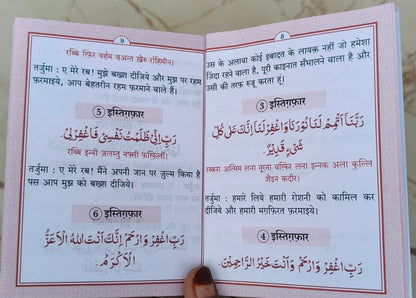 8
उस के अलावा कोई इबादत के लायक नहीं जो हमेशा
ज़िंदा रहने वाला है, पूरी काइनात संभालने वाला है और
उसी की तरफ़ रुजू करता हूं।
③ इस्तिग़फ़ार
رَبَّنَا اَتْمِمْ لَنَا نُوْرَنَا وَاغْفِرْ لَنَا اِنَّكَ عَلٰى كُلِّ
شَىْءٍ قَدِيْرٌ۔
रब्बना अत्मिम लना नूरना वग़्फ़िर लना इन्नक अला कुल्लि
शैइन कदीर।
तर्जुमा : हमारे लिये हमारी रोशनी को कामिल कर
दीजिये और हमारी मग़फ़िरत फ़रमाइये।
④ इस्तिग़फ़ार
رَبِّ اغْفِرْ وَارْحَمْ وَاَنْتَ خَيْرُ الرَّاحِمِيْنَ۔
9
रब्बि ग़्फ़िर वर्हम वअन्त ख़ैरु र्राहिमीन।
तर्जुमा : ए मेरे रब! मुझे बख़्श दीजिये और मुझ पर रहम
फ़रमाइये, आप बेहतरीन रहम फ़रमाने वाले हैं।
⑤ इस्तिग़फ़ार
رَبِّ اِنِّىْ ظَلَمْتُ نَفْسِىْ فَاغْفِرْلِىْ
रब्बि इन्नी ज़लम्तु नफ़्सी फ़ग़्फ़िरली।
तर्जुमा : ए मेरे रब! मैंने अपनी जान पर ज़ुल्म किया है
पस आप मुझ को बख़्श दीजिये।
⑥ इस्तिग़फ़ार
رَبِّ اغْفِرْ وَارْحَمْ اِنَّكَ اَنْتَ اللهُ الْاَعَزُّ
الْاَكْرَمُ۔